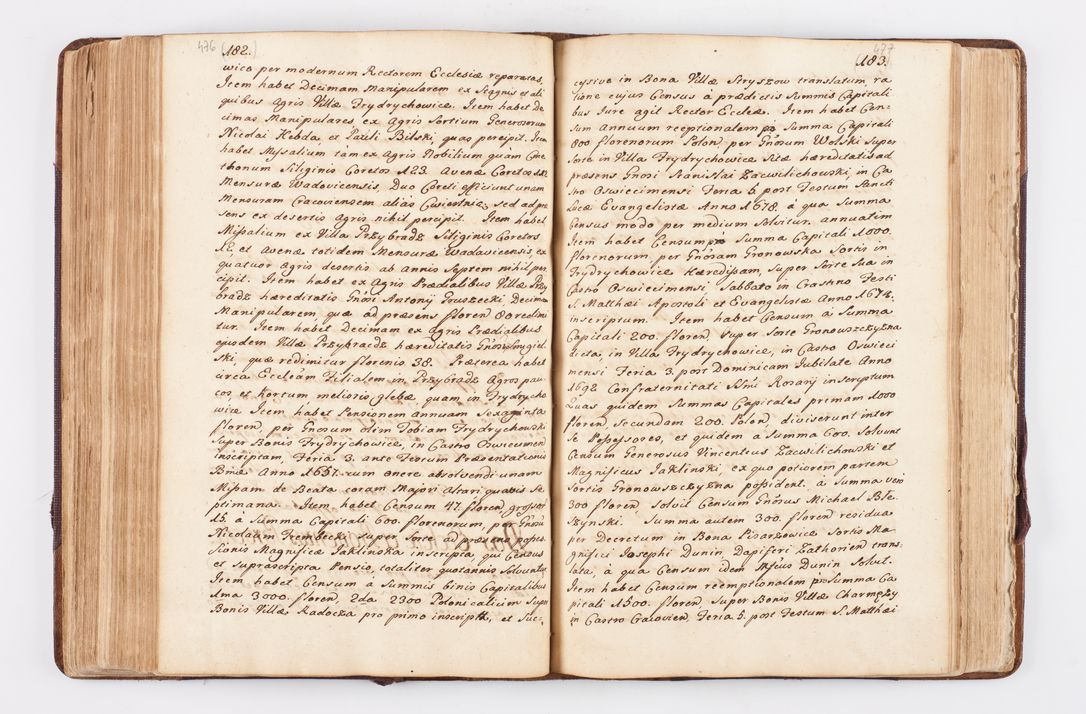 476
182.
wice per modernum Rectorem Ecclesiæ reparatas,
Item habet Decimam Manipularem ex Stagnis et ali
quibus Agris Villæ Frydrychowice. Item habet De
cimas Manipulares ex Agris Sortium Generosorum
Nicolai Hebda, et Pauli Bilski, quas percipit. Item
habet Missalium tàm ex Agris Nobilium quàm Cme
thonum Siliginis Coretos 123. Avenæ Coretos
Mensuræ Wadovicensis, Duo Coreti efficiunt unam
Mensuram Cracoviensem alias Cwiertnię, sed ad præ
sens ex desertis Agris nihil percipit. Item habet
Missalium ex Villa Przybradz Siliginis Coretos
12, et Avenæ totidem Mensuræ Wadavicensis, ex
quatuor Agris desertis ab annis Septem nihil per
cipit. Item habet ex Agris Prædialibus Villæ Przy
bradz hæreditatis Gnosi Antonij Gruszecki Decimam
Manipularem, quæ ad præsens floren 80 redimi
tur. Item habet Decimam ex Agris Prædialibus
ejusdem Villæ Przybradz hæreditatis Gnosi Smigiel
ski, quæ redimitur florenis 38. Præterea habet
circa Ecclēam Filialem in Przybradz Agros pau
cos, et hortum melioris glebæ, quam in Frydrycho
wice Item habet Pensionem annuam Sexaginta
floren, per Gnosum olim Tobiam Frydrychowski
Super Bonis Frydrychowice, in Castro Oswiecimen
inscriptam, Feria 3. ante Festum Præsentationis
Bmæ Anno 1657. cum onere absolvendi unam
Missam de Beata coram Majori Altari quavis Se
ptimana. Item habet Censum 47. floren, grossor
15. à Summa Capitali 600. florenorum, per Gnosum
Nicolaum Trembecki super Sorte ad præsens posses
sionis Magnificæ Jaklinska inscripta, qui Census
et suprascripta Pensio, totaliter quotannis Solvuntur
Item habet Censum à Summis binis Capitalibus
1ma 3000. floren, 2da 2300 Polonicalium Super
Bonis Villæ Radocza pro primo inscriptis, et Suc-
477
183.
cessive in Bona Villæ Stryszow translatum ra
tione cujus Census à prædictis Summis Capitali
bus Jure agit Rector Ecclēæ. Item habet Cen-
sum Annuum reemptionalem pō Summa Capitali
800 florenorum Polon, per Gnosum Wolski super
Sorte in Villa Frydrychowice Suæ hæreditatis ad
præsens Gnosi Stanislai Zacwilichowski, in Ca
stro Oswiecimensi Feria 5. post Festum Sancti
Lucæ Evangelistæ Anno 1678. à qua Summa
Census modo per medium Solvitur. annuatim
Item habet Censum pō Summa Capitali 1000.
florenorum, per Gnosam Gronowska Sortis in
Frydrychowice Hæredissam, Super Sorte Sua in
Castro Oswiecimensi Sabbato in Crastino Festi
S. Matthæi Apostoli et Evangelistæ Anno 1674.
inscriptum. Item habet Censum à Summa
Capitali 200. floren, Super Sorte Gronowszczyzna
dicta, in Villa Frydrychowice, in Castro Oswieci
mensi Feria 3. post Dominicam Jubilate Anno
1692 Confraternitati SSmi Rosarij inscriptum
Quas quidem Summas Capitales primam 1000
floren, secundam 200. Polon, diviserunt inter
Se Possessores, et quidem à Summa 600. Solvunt
Censum Generosus Vincentius Zacwilichowski et
Magnificus Jaklinski, ex quo potiorem partem
Sortis Gronowszczyzna possident. à Summa vero
300 floren, solvit Censum Gnosus Michael Ble-
szynski. Summa autem 300. floren residua
per Decretum in Bona Pisarzowice Sortis Ma-
gnifici Josephi Dunin Dapiferi Zathorien trans-
lata, à qua Censum idem Mfcus Dunin Solvit.
Item habet Censum reemptionalem pō Summa Ca
pitali 1500. floren Super Bonis Villæ Charmęzy
in Castro Cracovien, Feria 5. post Festum S. Matthæi